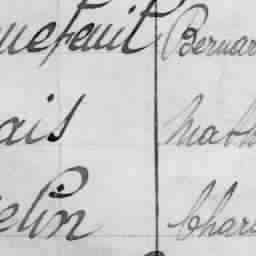 uefeuil Bernar
ais Math
elin Char